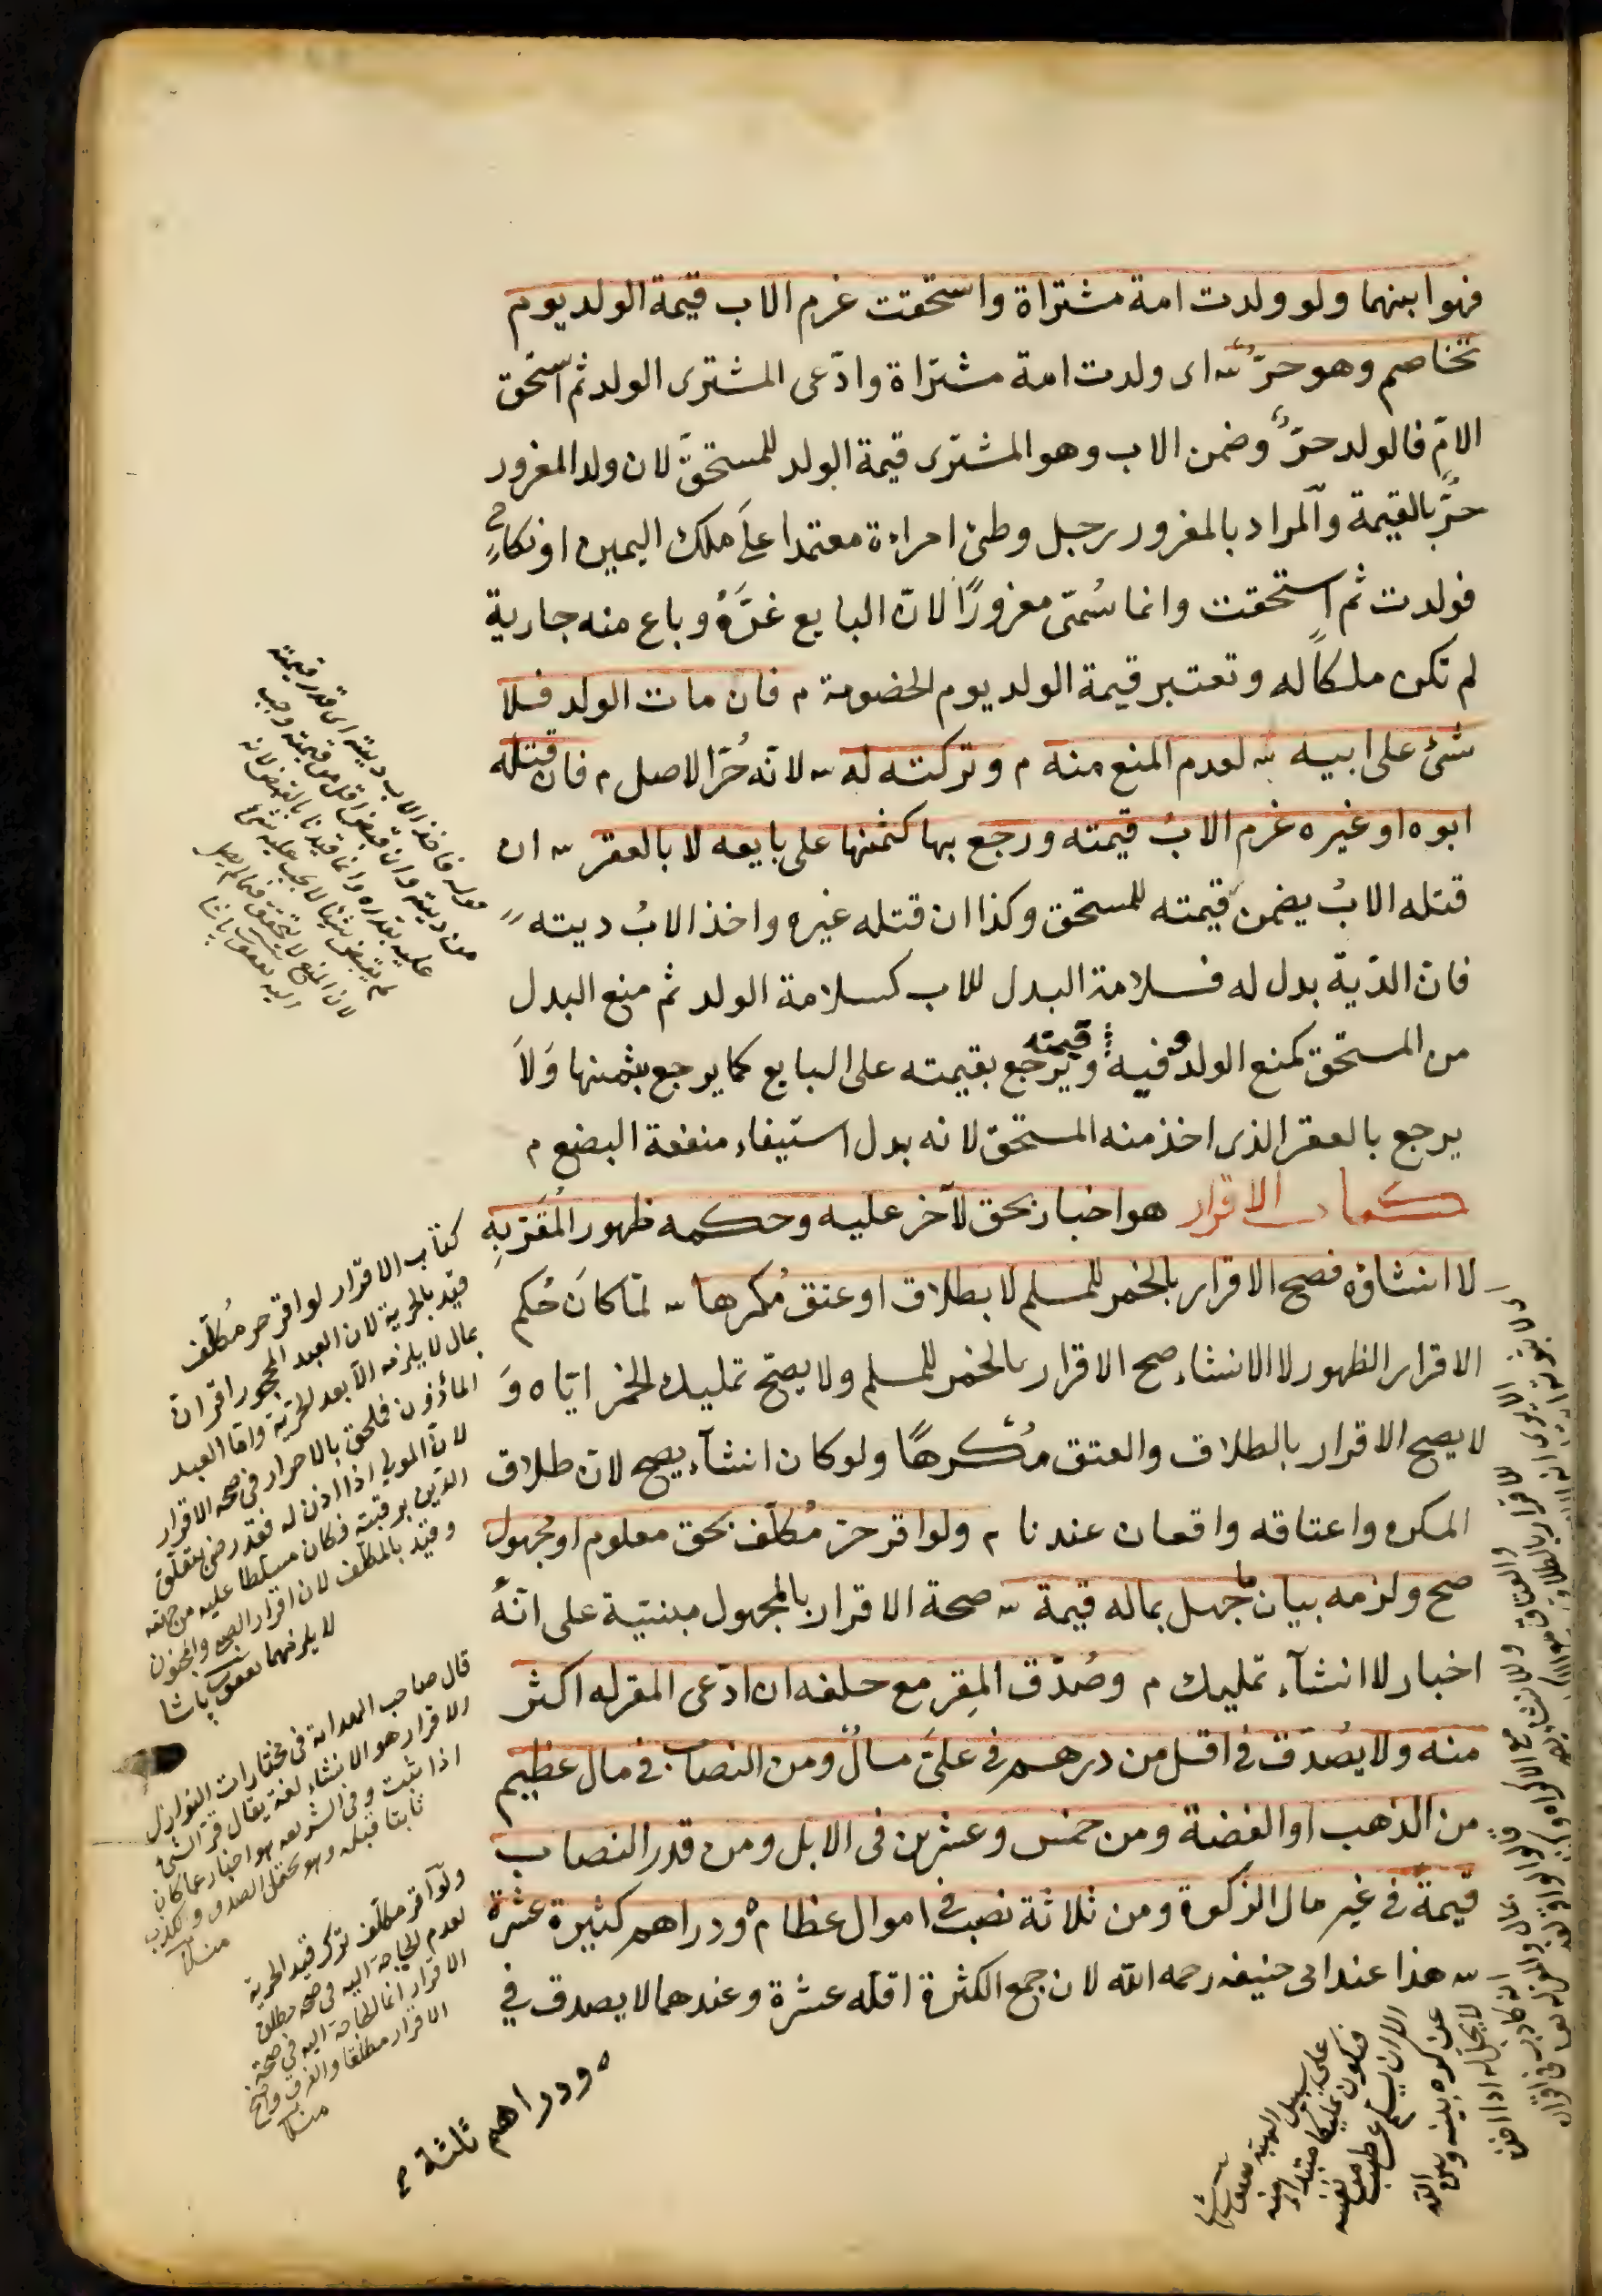 فهو ابنهما ولو ولدت امة مشتراة واستحقت غرم الاب قيمة الولد يوم
تخاصم وهو حرٌّ ش اى ولدت امة مشتراة وادّعى المشترى الولد ثم استحق
الامّ فالولد حرٌّ وضمن الاب وهو المشترى قيمة الولد للمستحقّ لان ولد المغرور
حرٌّ بالقيمة والمراد بالمغرور رجل وطئ امراءة معتمدا على ملك اليمين او نكاح
فولدت ثم استحقت وانما سُمّى مغرورًا لانّ البايع غَرَّهُ وباع منه جارية
لم تكن ملكاً له وتعتبر قيمة الولد يوم الخصومة م فان مات الولد فلا
شئ على ابيه ش لعدم المنع منه م وتركته له ش لانّه حُرّ الاصل م فان قتله
ابوه او غيره غرم الابُ قيمته ورجع بها كثمنها على بايعه لا بالعقر ش ان
قتله الابُ يضمن قيمته للمستحق وكذا ان قتله غيره واخذ الابُ ديته
فانّ الدّية بدل له فسلامة البدل للاب كسلامة الولد ثم منع البدل
من المستحق كمنع الولد وفيه قيمته ويرجع بقيمته على البايع كما يرجع بثمنها وَلاَ
يرجع بالعقر الذى اخذ منه المستحق لانه بدل استيفاء منفعة البضع م
كتاب الاقرار هو اخبار بحق لآخر عليه وحكمه ظهور المُقَرّ بِهِ
لا انشاؤه فصح الاقرار بالخمر للمسلم لا بطلاق او عتق مُكرها ش لمّا كانَ حُكم
الاقرار الظهور لا الانشاء صح الاقرار بالخمر للمسلم ولا يصحّ تمليك الخمر ايّاه وَ
لا يصح الاقرار بالطلاق والعتق مُكرهًا ولو كان انشآء يصح لانّ طلاق
المكره واعتاقه واقعان عندنا م ولو اقر حرّ مُكلّف بحق معلوم او مجهول
صح ولزمه بيان ما جهل بماله قيمة ش صحة الاقرار بالمجهول مبنيّة على انّهُ
اخبار لا انشآء تمليك م وصُدّق المِقر مع حلفه ان ادّعى المقر له اكثر
منه ولا يُصدّق فى اقل من درهم فى علىَّ مالٌ ومن النصاب فى مال عظيم
من الذهب او الفضة ومن خمس وعشرين فى الابل ومن قدر النصاب
قيمةً فى غير مال الزكوة ومن ثلاثة نصب فى اموال عظام ودراهم كثيرة عشرة
ش هذا عند ابى حنيفه رحمه الله لان جمع الكثرة اقلّه عشرة وعندهما لا يصدق فى
ودراهم ثلثة
قوله فاخذ الاب ديته اى قدر قيمته
من ديته وان قبض اقل من قيمته وجب
عليه بقدره وانما قيدنا بالقبض لانه
لم يقبض شيئا لا يجب عليه شئ
لان المنع لا يتحقق فيما لم يصل
اليه يعقوب باشا
كتاب الاقرار لو اقر حر مُكلّف
قيّد بالحرية لان العبد المحجور اقرانّ
بمال لا يلزمه الآ بعد الحرّية وامّا العبد
المأذون فملحق بالاحرار فى صحّة الاقرار
لانّ المولى اذا اذن له فقد رضى بتعلّق
الدّين برقبته فكان مسلّطا عليه من جهته
وقيّد بالمكلّف لان اقرار الصبى والمجنون
لا يلزمهما يعقوب باشا
قال صاحب الهداية فى مختارات النوازل
الاقرار هو الانشاء لغة يقال قرّ الشئ
اذا ثبت وفى الشريعه هو اخبار عما كان
ثابتا قبله وهو يحتمل الصدق والكذب
ولو اقر مكلّف ترك قيد الحرية
لعدم الحاجة اليه فى صحّة مطلق
الاقرار انما الحاجة اليه فى صحّة
الاقرار مطلقا والفرق واضح